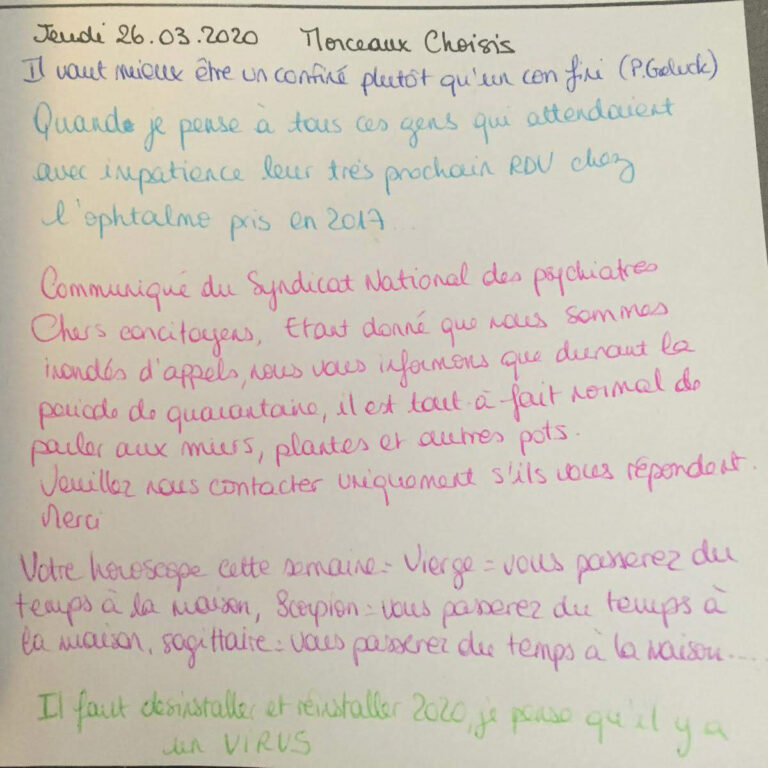 Jeudi 26.03.2020 Morceaux Choisis
Il vaut mieux être un confiné plutôt qu'un con fini (P.Geluck)
Quand je pense à tous ces gens qui attendaient
avec impatience leur très prochain RDV chez
l'ophtalmo pris en 2017...
Communiqué du Syndicat National des psychiatres
Chers concitoyens, Etant donné que nous sommes
inondés d'appels, nous vous informons que durant la
période de quarantaine, il est tout-à-fait normal de
parler aux murs, plantes et autres pots.
Veuillez nous contacter uniquement s'ils vous répondent.
Merci
Votre horoscope cette semaine = Vierge = vous passerez du
temps à la maison, Scorpion = vous passerez du temps à
la maison, sagittaire = vous passerez du temps à la maison....
Il faut désinstaller et réinstaller 2020, je pense qu'il y a
un VIRUS